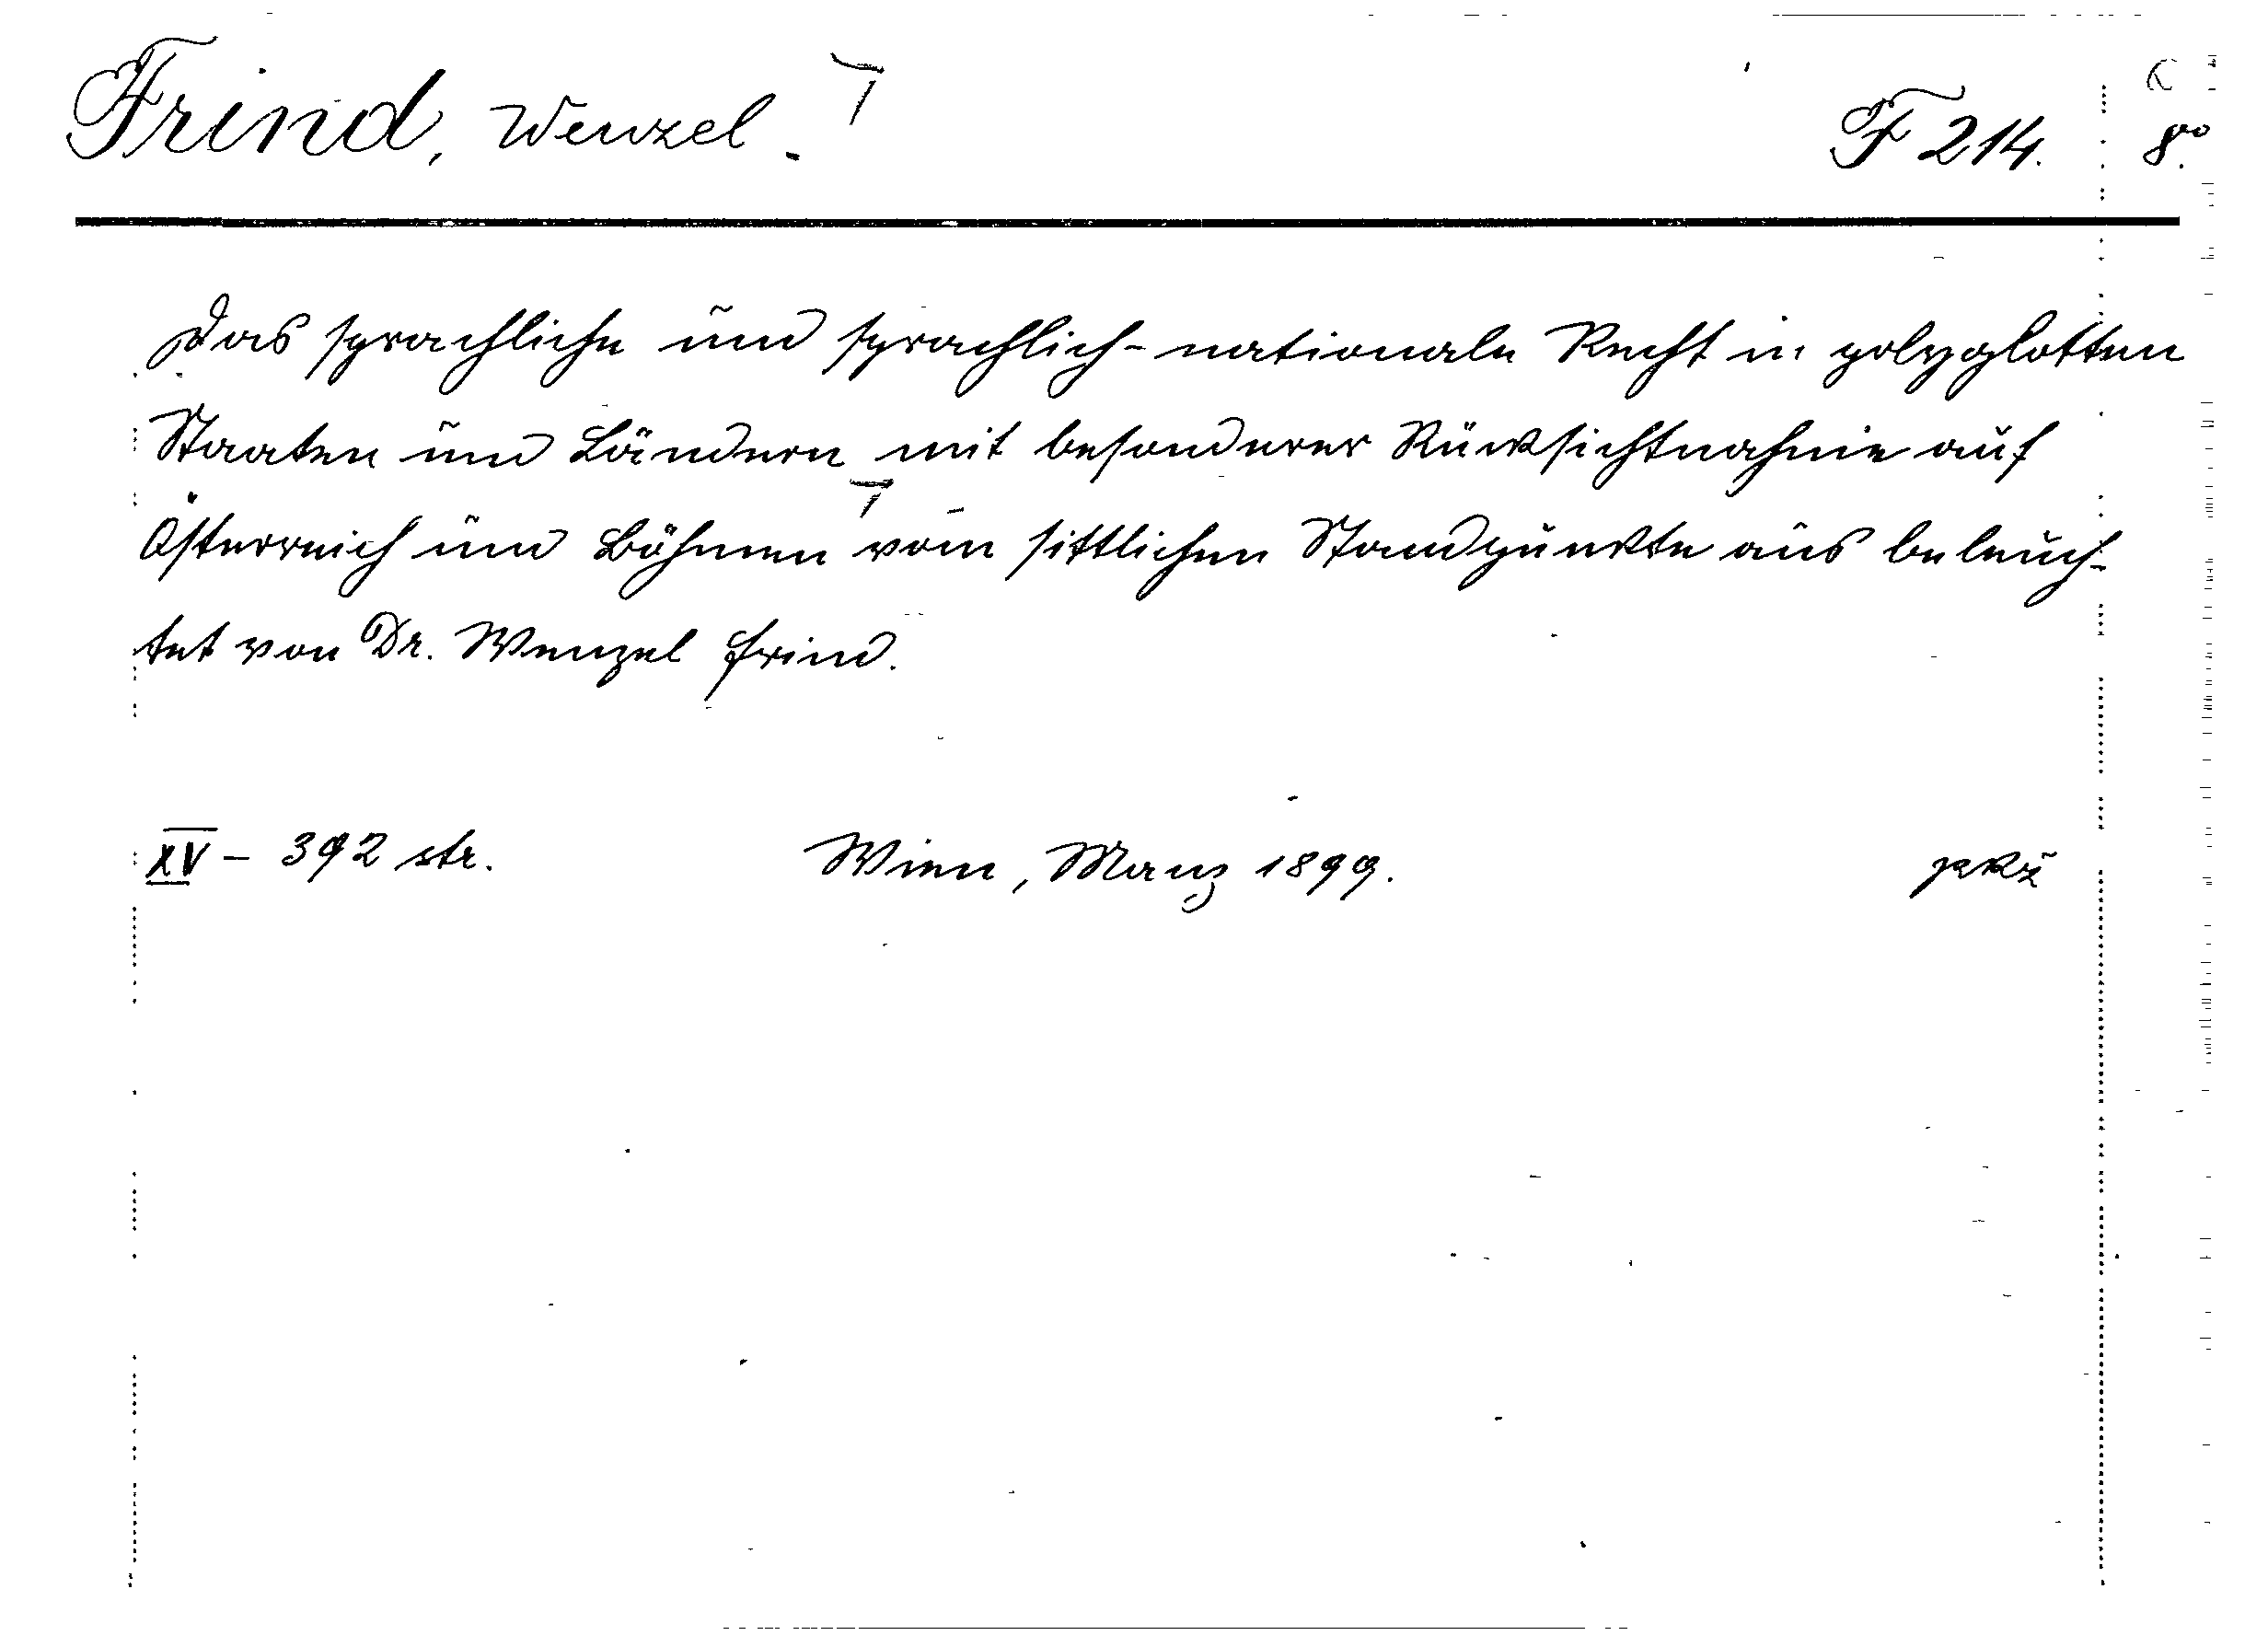 Frind, Wenzel. F 214. 8º
Das sprachliche und sprachlich-nationale Recht in polyglotten
Staaten und Ländern mit besonderer Rücksichtnahme auf
Österreich und Böhmen vom sittlichen Standpunkte aus beleuch-
tet von Dr. Wenzel Frind.
XV – 392 str. Wien, Manz 1899.